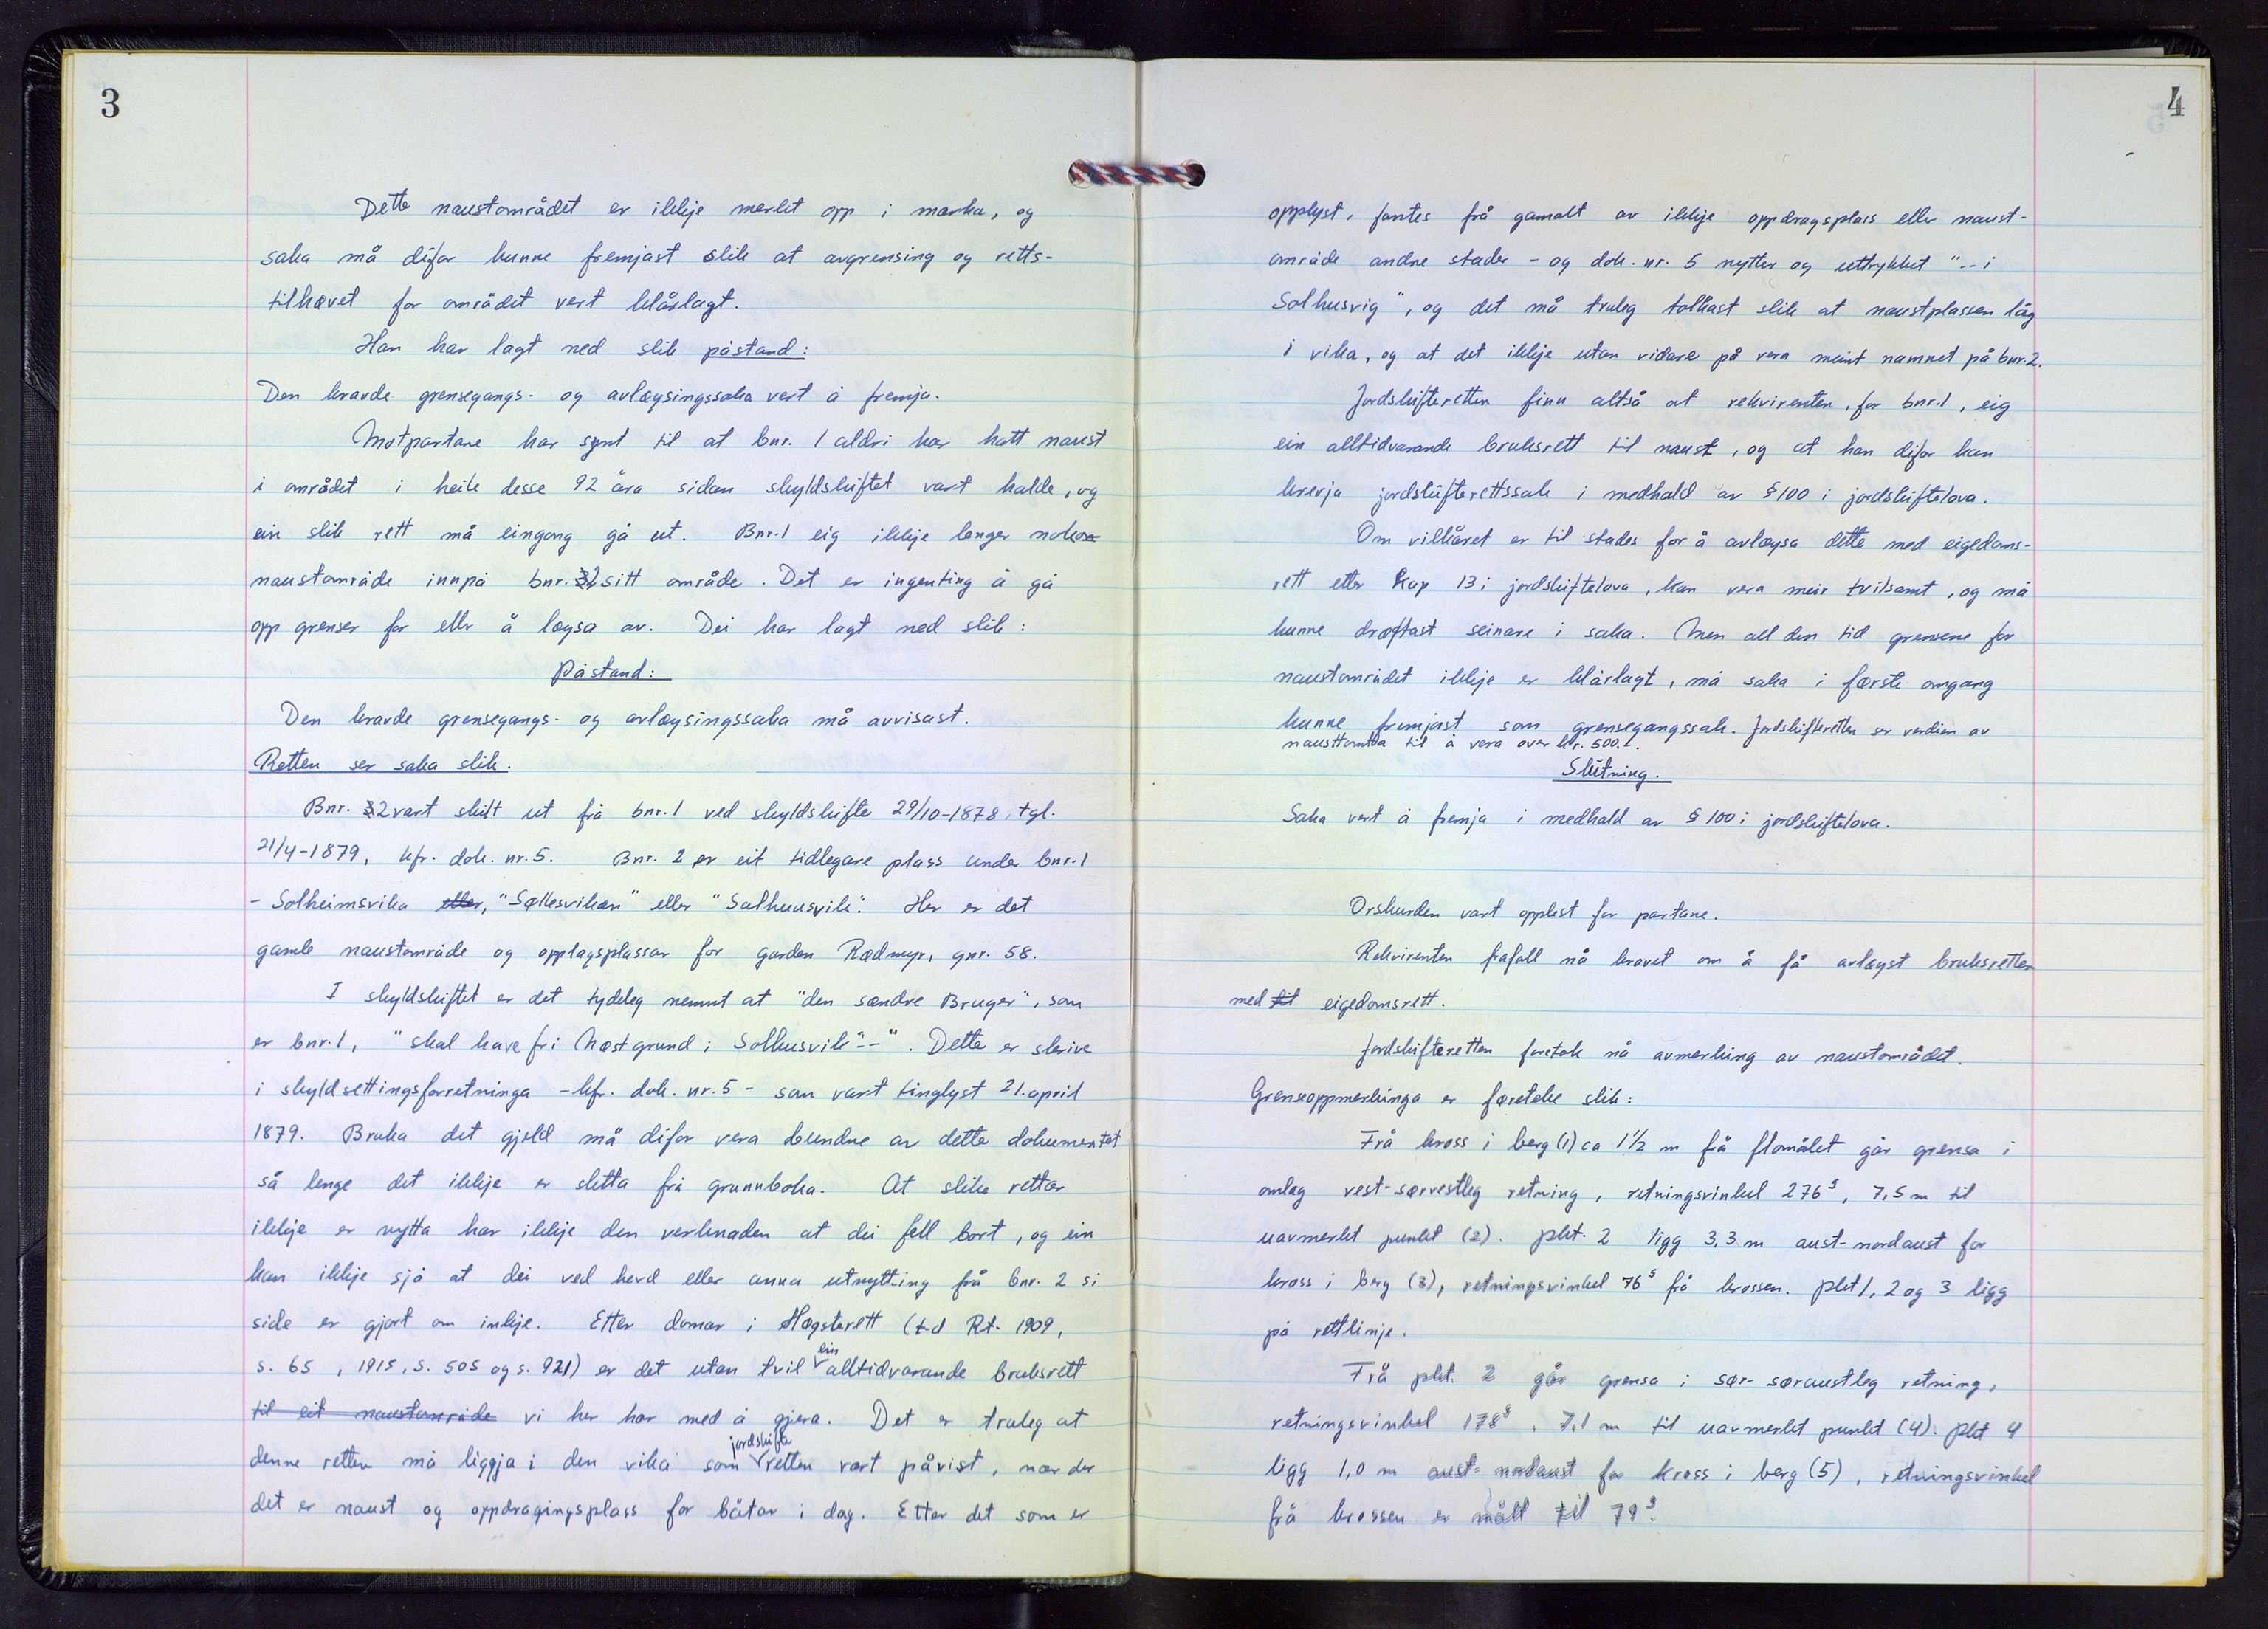 3
Dette naustområdet er ikkje merket opp i marka, og
saka må difor kunne fremjast slik at avgrensing og retts-
tilhøvet for området vert klårlagt.
Han har lagt ned slik påstand:
Den kravde grensegangs- og avløysingssaka vert å fremja.
Motpartane har synt til at bnr. 1 aldri har hatt naust
i området i heile desse 92 åra sidan skyldskiftet vart halde, og
ein slik rett må eingong gå ut. Bnr. 1 eig ikkje lenger noko
naustområde innpå bnr. 2 sitt område. Det er ingenting å gå
opp grenser for eller å løysa av. Dei har lagt ned slik:
Påstand:
Den kravde grensegangs- og avløysingssaka må avvisast.
Retten ser saka slik.
Bnr. 2 vart skilt ut frå bnr. 1 ved skyldskifte 29/10-1878, tgl.
21/4-1879, kfr. dok. nr. 5. Bnr. 2 er eit tidlegare plass under bnr. 1
- Solheimsvika eller, "Søllesvikan" eller "Salhuusvik". Her er det
gamle naustområde og opplagsplassar for garden Rødmyr, gnr. 58.
I skyldskiftet er det tydeleg nemnt at "den søndre Bruger", som
er bnr. 1, "skal have fri Nøstgrund i Solhusvik"--". Dette er skrive
i skyldsettingsforretninga - kfr. dok. nr. 5 - som vart tinglyst 21. april
1879. Bruka det gjeld må difor vera bundne av dette dokumentet
så lenge det ikkje er sletta frå grunnboka. At slike rettar
ikkje er nytta har ikkje den verknaden at dei fell bort, og ein
kan ikkje sjå at dei ved hevd eller anna utnytting frå bnr. 2 si
side er gjort om inkje. Etter domar i Høgsterett (t.d Rt. 1909,
s. 65, 1915, s. 505 og s. 921) er det utan tvil ein alltidvarande bruksrett
til eit naustområde vi her har med å gjera. Det er truleg at
denne retten må liggja i den vika som jordskifteretten vart påvist, nær der
det er naust og oppdragingsplass for båtar i dag. Etter det som er
4
opplyst, fantes frå gamalt av ikkje oppdragsplass eller naust-
område andre stader - og dok. nr. 5 nytter og uttrykket "-- i
Solhusvig", og det må truleg tolkast slik at naustplassen låg
i vika, og at det ikkje utan vidare på vera meint namnet på bnr. 2.
Jordskifteretten finn altså at rekvirenten, for bnr. 1, eig
ein alltidvarande bruksrett til naust, og at han difor kan
krevja jordskifterettssak i medhald av § 100 i jordskiftelova.
Om vilkåret er til stades for å avløysa dette med eigedoms-
rett etter kap 13 i jordskiftelova, kan vera meir tvilsamt, og må
kunne drøftast seinare i saka. Men all den tid grensene for
naustområdet ikkje er klårlagt, må saka i første omgang
kunne fremjast som grensegangssak. Jordskifteretten ser verdien av
nausttomta til å vera over kr. 500.-.
Slutning.
Saka vert å fremja i medhald av § 100 i jordskiftelova.
Orskurden vart opplest for partane.
Rekvirenten frafall nå kravet om å få avløyst bruksretten
med til eigedomsrett.
Jordskifteretten foretok nå avmerking av naustområdet.
Grenseoppmerkinga er føreteke slik:
Frå kross i berg (1) ca 1½ m frå flomålet går grensa i
omlag vest-sørvestleg retning, retningsvinkel 276ᵍ, 7,5 m til
uavmerket punkt (2). pkt. 2 ligg 3.3 m aust-nordaust for
kross i berg (3), retningsvinkel 76ᵍ frå krossen. pkt 1, 2 og 3 ligg
på rettlinje.
Frå pkt. 2 går grensa i sør-søraustleg retning,
retningsvinkel 178ᵍ, 7,1 m til uavmerket punkt (4). Pkt 4
ligg 1,0 m aust-nordaust for kross i berg (5), retningsvinkel
frå krossen er målt til 79ᵍ.